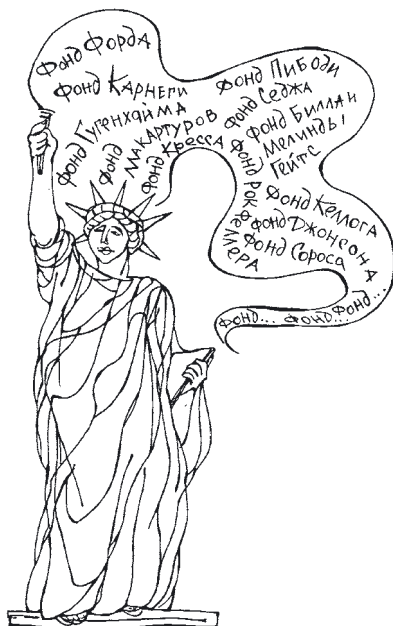 Фонд Форда
Фонд Карнеги
Фонд Гугенхайма
Фонд Макартуров
Фонд Кресса
Фонд Пибоди
Фонд Седжа
Фонд Билла и
Мелинды
Гейтс
Фонд Рокфеллера
Фонд Келлога
Фонд Джонсона
Фонд Сороса
Фонд... Фонд... Фонд...